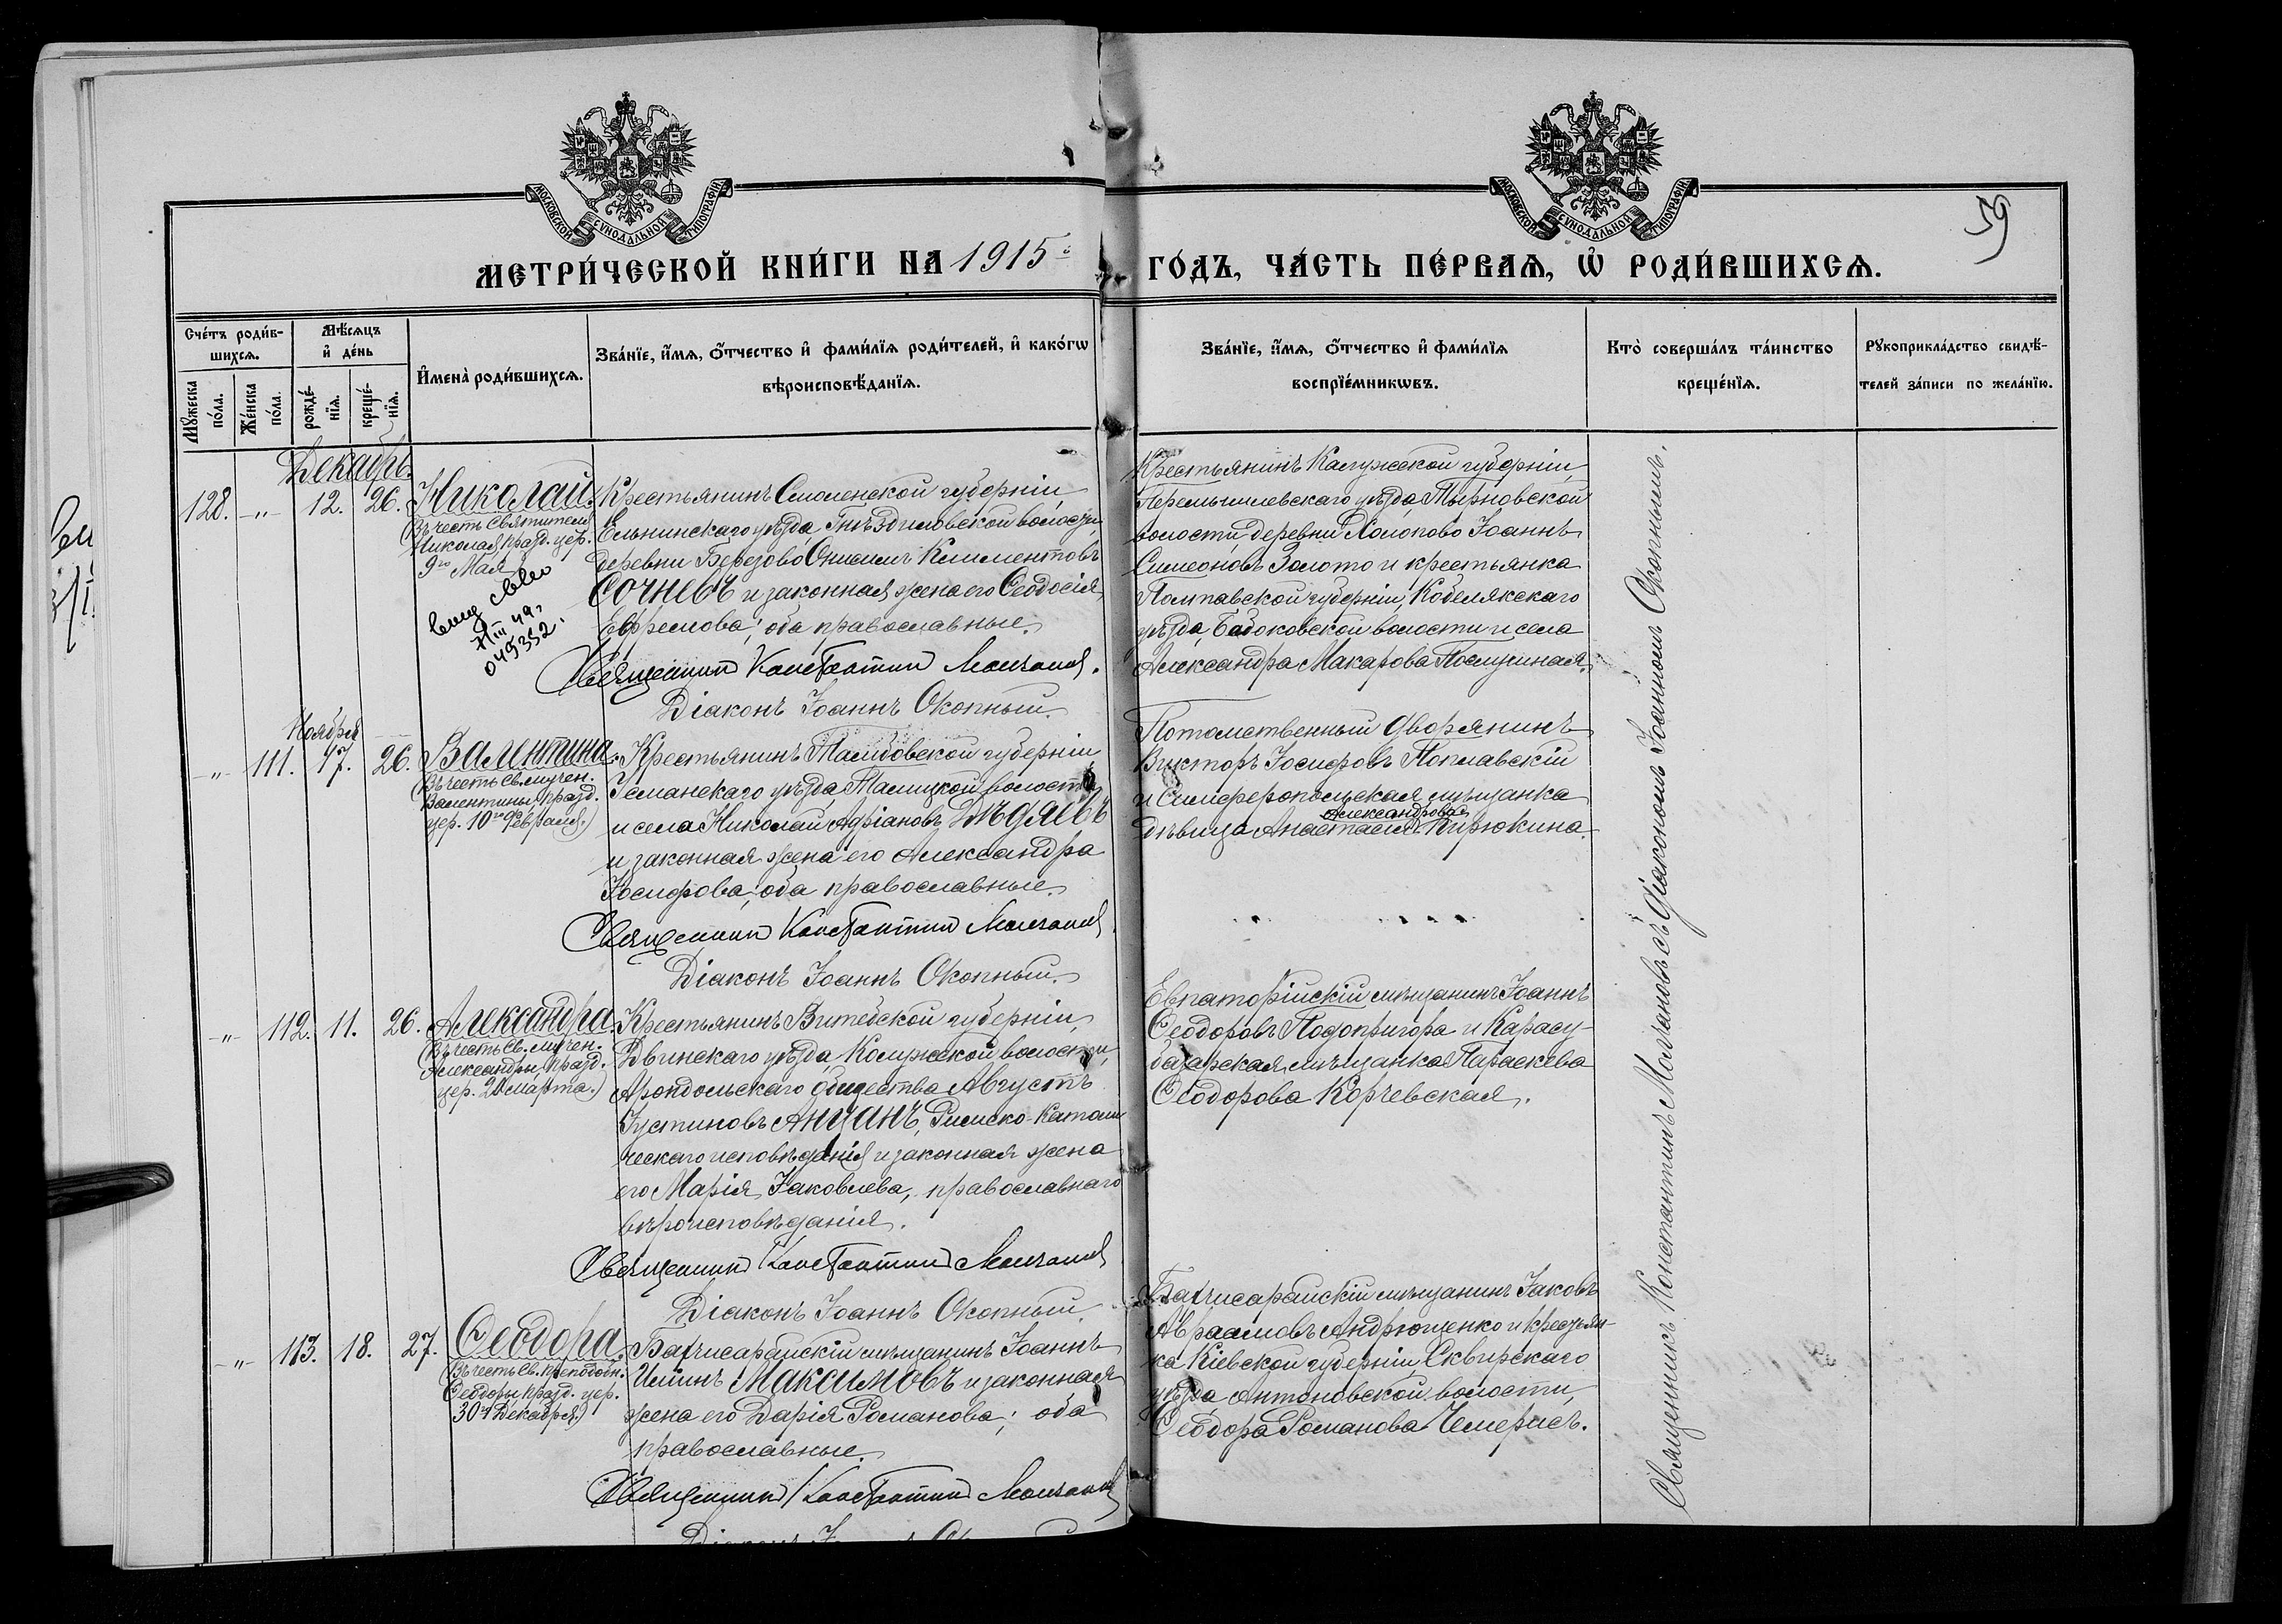 МОСКОВСКОЙ СѴНОДАЛЬНОЙ ТИПОГРАФІИ
МОСКОВСКОЙ СѴНОДАЛЬНОЙ ТИПОГРАФІИ
59
МЕТРИ́ЧЕСКОЙ КНИ́ГИ НА 1915й
ГО́ДЪ, ЧА́СТЬ ПЕ́РВАѦ, Ѡ҆ РОДИ́ВШИХСѦ.
Сче́тъ роди́в-
шихсѧ.
Мꙋ́жеска по́ла.
Же́нска по́ла.
Мѣ́сѧцъ
и҆ де́нь
рожде́-
нїѧ.
креще́-
нїѧ.
И҆мена̀ роди́вшихсѧ.
Зва́нїе, и҆́мѧ, ѻ҆́тчество и҆ фами́лїѧ роди́телей, и҆ како́гѡ
вѣроисповѣ́данїѧ.
Зва́нїе, и҆́мѧ, ѻ҆́тчество и҆ фами́лїѧ
воспрїе́мникѡвъ.
Кто̀ соверша́лъ та́инство
креще́нїѧ.
Рꙋкоприкла́дство свидѣ́-
телей за́писи по жела́нїю.
Декабрь.
128. -„- 12. 26.
Николай
(Въ честь Святителя
Николая празд. цер.
9го Мая)
III 49г
049352.
Крестьянинъ Смоленской губерніи,
Ельнинскаго уѣзда, Гнѣздиловской волости,
деревни Березово Онисимъ Климентовъ
Сочневъ и законная жена его Ѳеодосія
Ефремова; оба православные.
Священник Константин Молчанов.
Діаконъ Іоаннъ Окопный.
Крестьянинъ Калужской губерніи,
Перемышлевскаго уѣзда, Тырновской
волости, деревни Холопово Іоаннъ
Симеоновъ Золото и крестьянка
Полтавской губерніи, Кобелякскаго
уѣзда, волости и села
Александра Макарова
Ноября
-„- 111. 17. 26.
Валентина.
(Въ честь Св. мучен.
Валентины, празд.
цер. 10го Февраля.)
Крестьянинъ Тамбовской губерніи,
Усманскаго уѣзда, Талицкой волости
и села Николай Адріановъ Дѣдяевъ
и законная жена его Александра
Іосифова; оба православные.
Священник Константин Молчанов
Діаконъ Іоаннъ Окопный.
Потомственный дворянинъ
Викторъ Іосифовъ Поплавскій
и Симферопольская мѣщанка
Александрова
дѣвица Анастасія Кирюкина.
-„- 112. 11. 26.
Александра
(Въ честь Св. мучен.
Александры, празд.
цер. 20 марта.)
Крестьянинъ Витебской губерніи,
Двинскаго уѣзда, Колужской волости,
Арондольскаго общества Августъ
Іустиновъ Анцанъ, Римско-Католи
ческаго исповѣданія и законная жена
его Марія Іаковлева, православнаго
вѣроисповѣданія.
Священник Константин Молчанов
Діаконъ Іоаннъ Окопный.
Евпаторійскій мѣщанинъ Іоаннъ
Ѳеодоровъ Подопригора и Карасу-
базарская мѣщанка Параскева
Ѳеодорова Корчевская.
-„- 113. 18. 27.
Ѳеодора.
(Въ честь Св. преподобн.
Ѳеодоры, празд. цер.
30го Декабря.)
Бахчисарайскій мѣщанинъ Іоаннъ
Максимовъ и законная
жена его Дарія Романова; оба
православные.
Священник Константин Молчанов
Бахчисарайскій мѣщанинъ Іаковъ
Авраамовъ Андрющенко и крестьян-
ка Кіевской губерніи, Сквирскаго
уѣзда, Антоновской волости,
Ѳеодора Романова Чемерисъ.
Священникъ Константинъ Молчановъ съ діакономъ Іоанномъ Окопнымъ.